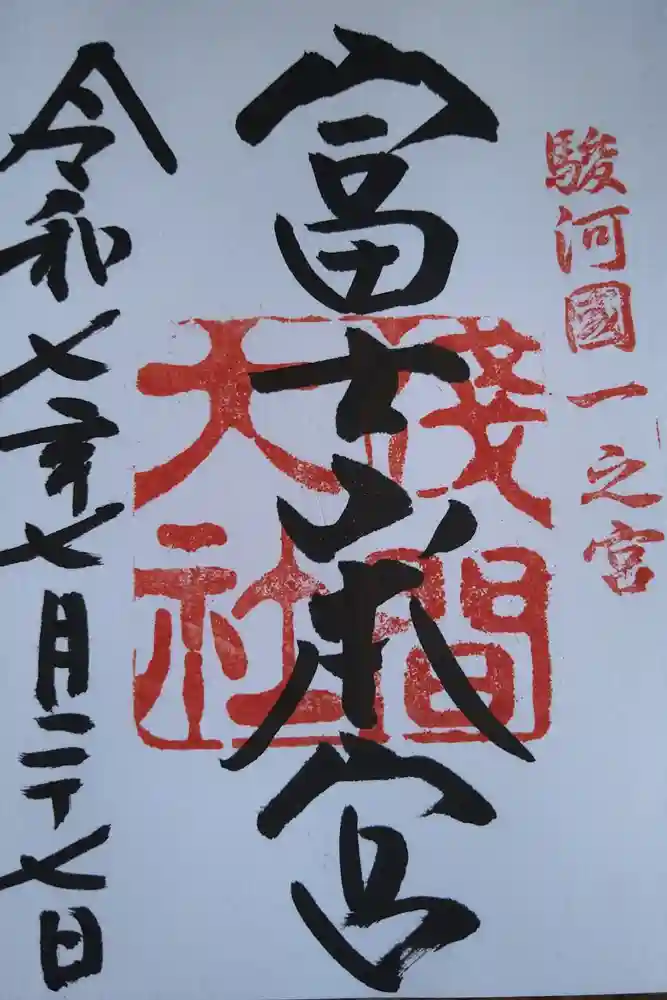 駿河國一之宮
富士山本宮
淺間大社
令和七年七月二十七日